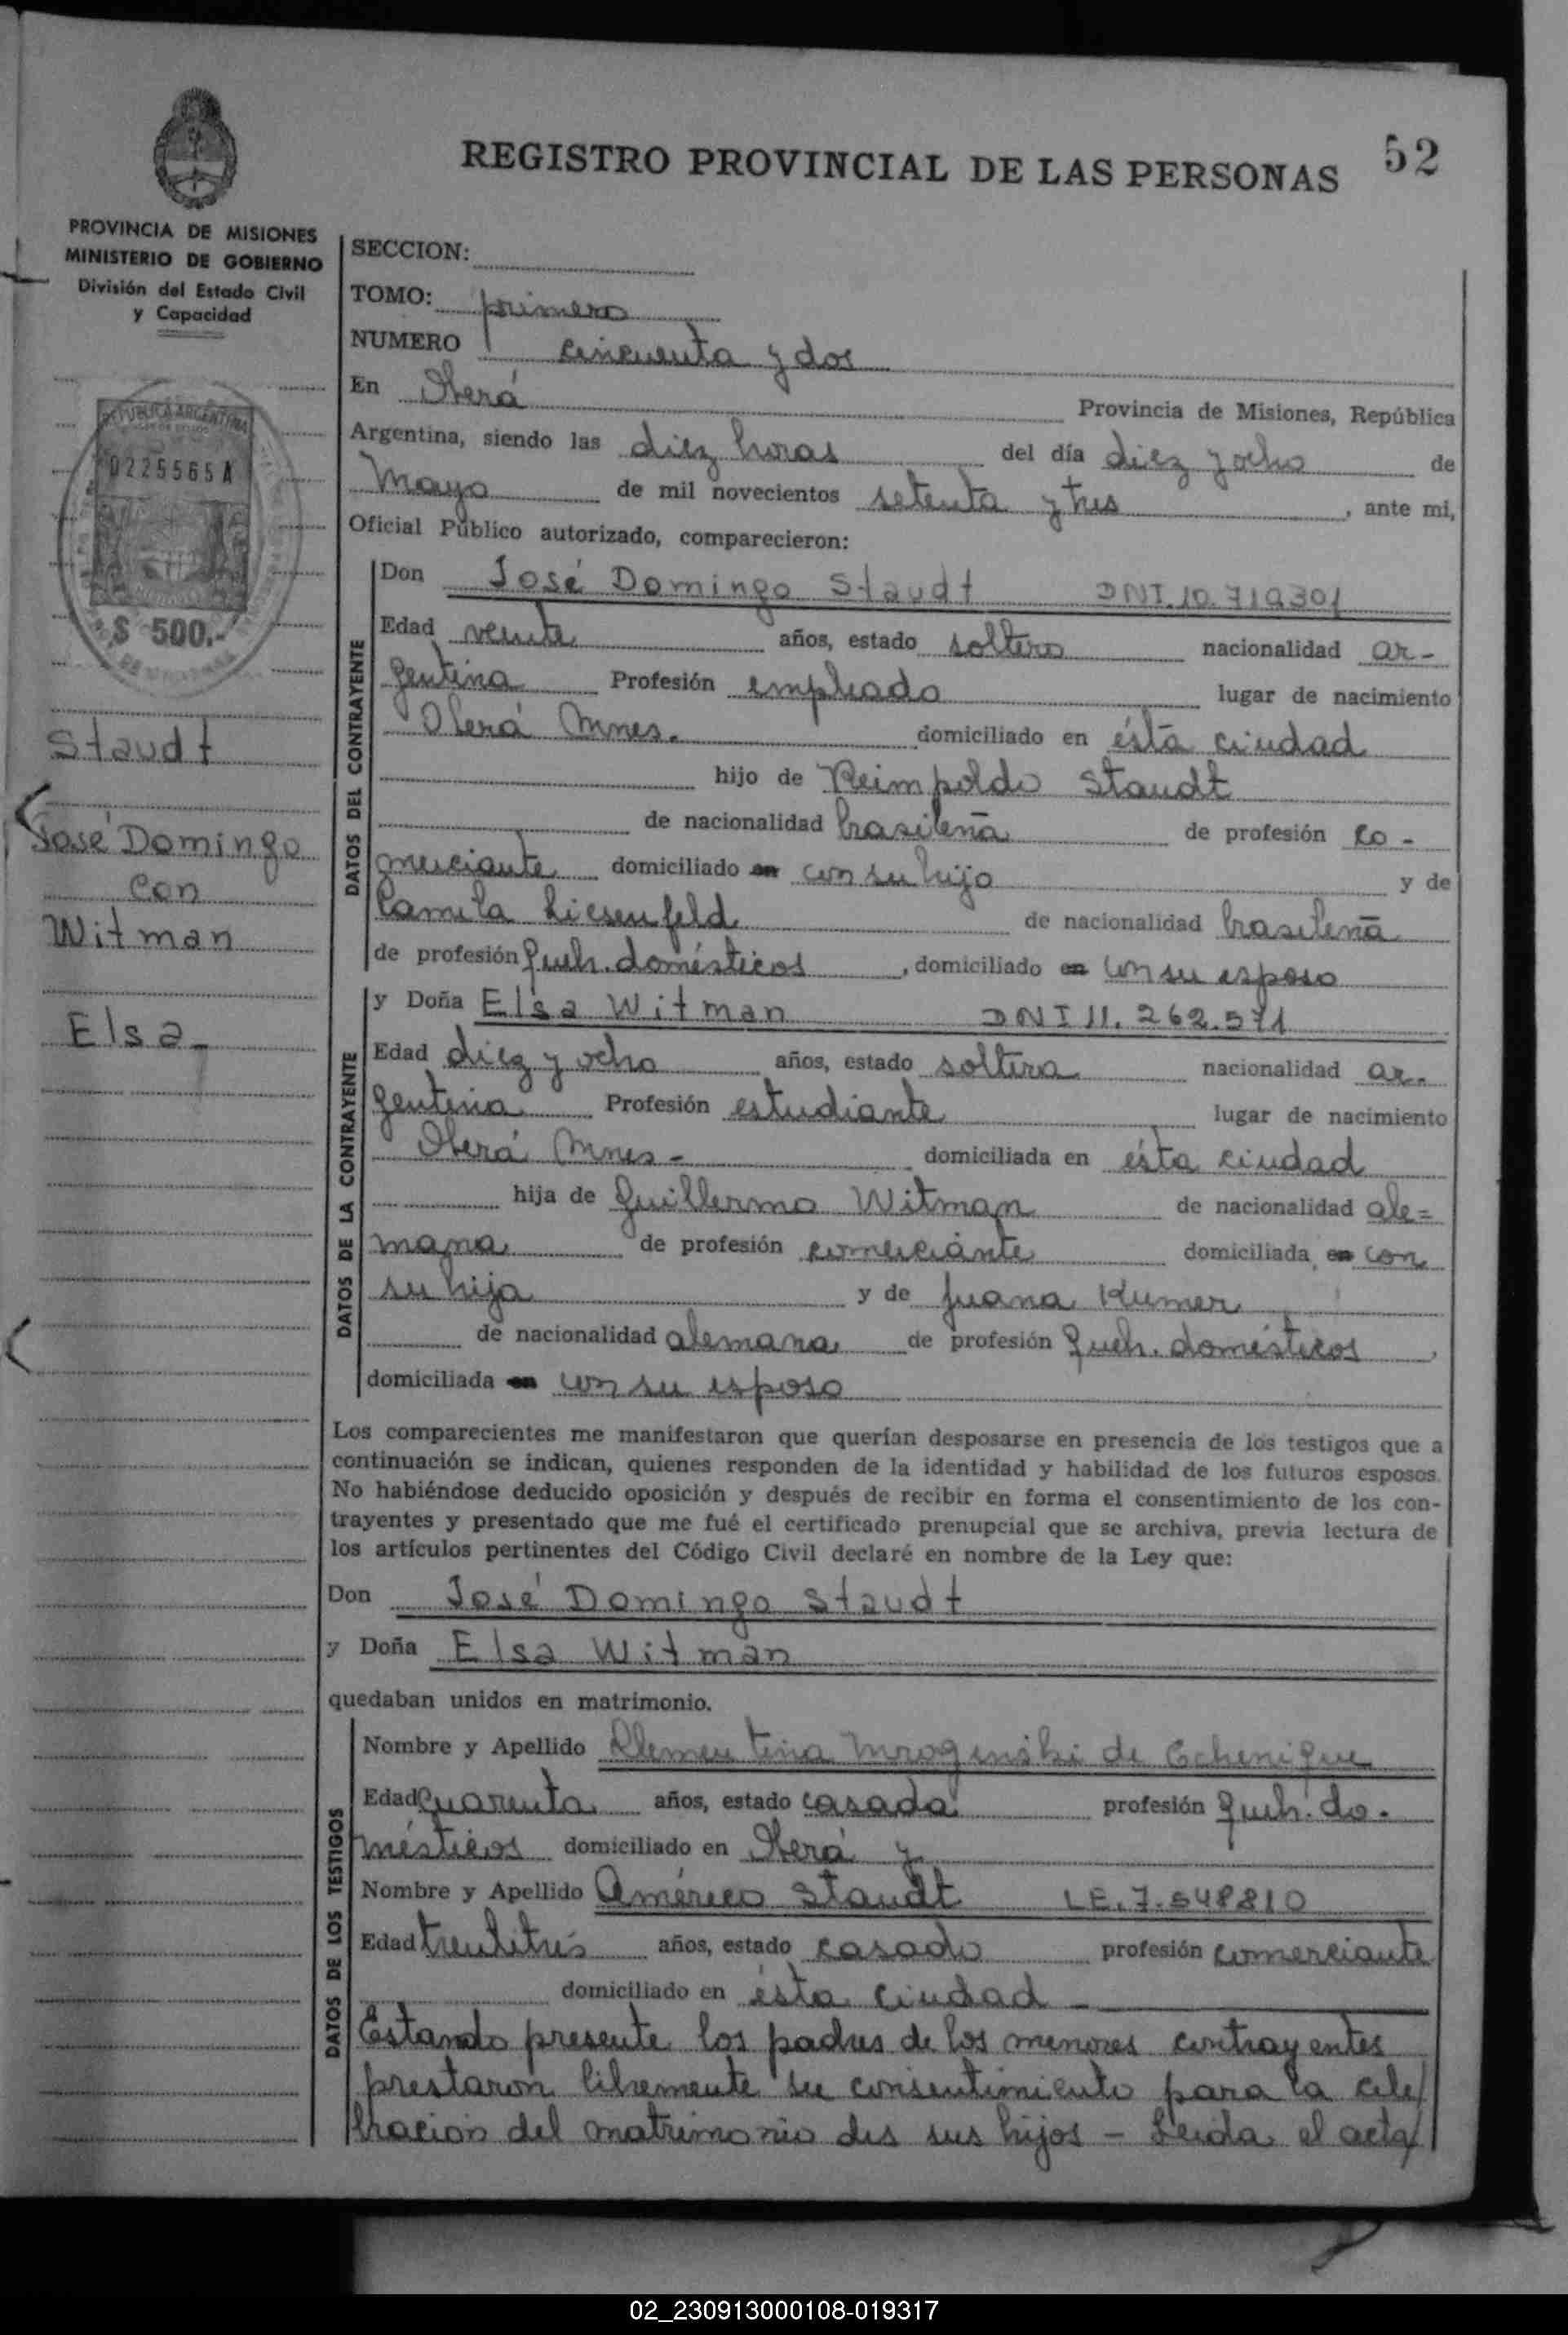 52
REGISTRO PROVINCIAL DE LAS PERSONAS
PROVINCIA DE MISIONES
MINISTERIO DE GOBIERNO
División del Estado Civil
y Capacidad
REPUBLICA ARGENTINA
0225565 A
$ 500.-
Staudt
José Domingo
con
Witman
Elsa-
SECCION:
TOMO: primero
NUMERO cincuenta y dos
En Oberá Provincia de Misiones, República
Argentina, siendo las diez horas del día diez y ocho de
Mayo de mil novecientos setenta y tres, ante mi,
Oficial Público autorizado, comparecieron:
DATOS DEL CONTRAYENTE
Don José Domingo Staudt DNI.10.719301
Edad veinte años, estado soltero nacionalidad ar-
gentina Profesión empleado lugar de nacimiento
Oberá Mnes. domiciliado en ésta ciudad
hijo de Reimpoldo Staudt
de nacionalidad brasileña de profesión co-
merciante domiciliado en con su hijo y de
Camila Liesenfeld de nacionalidad brasileña
de profesión Queh. domésticos, domiciliado en con su esposo
DATOS DE LA CONTRAYENTE
y Doña Elsa Witman DNI 11.262.571
Edad diez y ocho años, estado soltera nacionalidad ar-
gentina Profesión estudiante lugar de nacimiento
Oberá Mnes- domiciliada en ésta ciudad
hija de Guillermo Witman de nacionalidad ale=
mana de profesión comerciante domiciliada en con
su hija y de Juana Kumer
de nacionalidad alemana de profesión Queh. domésticos,
domiciliada en con su esposo
Los comparecientes me manifestaron que querían desposarse en presencia de los testigos que a
continuación se indican, quienes responden de la identidad y habilidad de los futuros esposos.
No habiéndose deducido oposición y después de recibir en forma el consentimiento de los con-
trayentes y presentado que me fué el certificado prenupcial que se archiva, previa lectura de
los artículos pertinentes del Código Civil declaré en nombre de la Ley que:
Don José Domingo Staudt
y Doña Elsa Witman
quedaban unidos en matrimonio.
DATOS DE LOS TESTIGOS
Nombre y Apellido Clementina Mroginski de Echenique
Edad Cuarenta años, estado casada profesión Queh. do-
mésticos domiciliado en Oberá y
Nombre y Apellido Américo Staudt LE.7.548810
Edad treintitrés años, estado casado profesión comerciante
domiciliado en ésta ciudad-
Estando presente los padres de los menores contrayentes
prestaron libremente su consentimiento para la cele/
bración del matrimonio des sus hijos - Leida el acta/
02_230913000108-019317